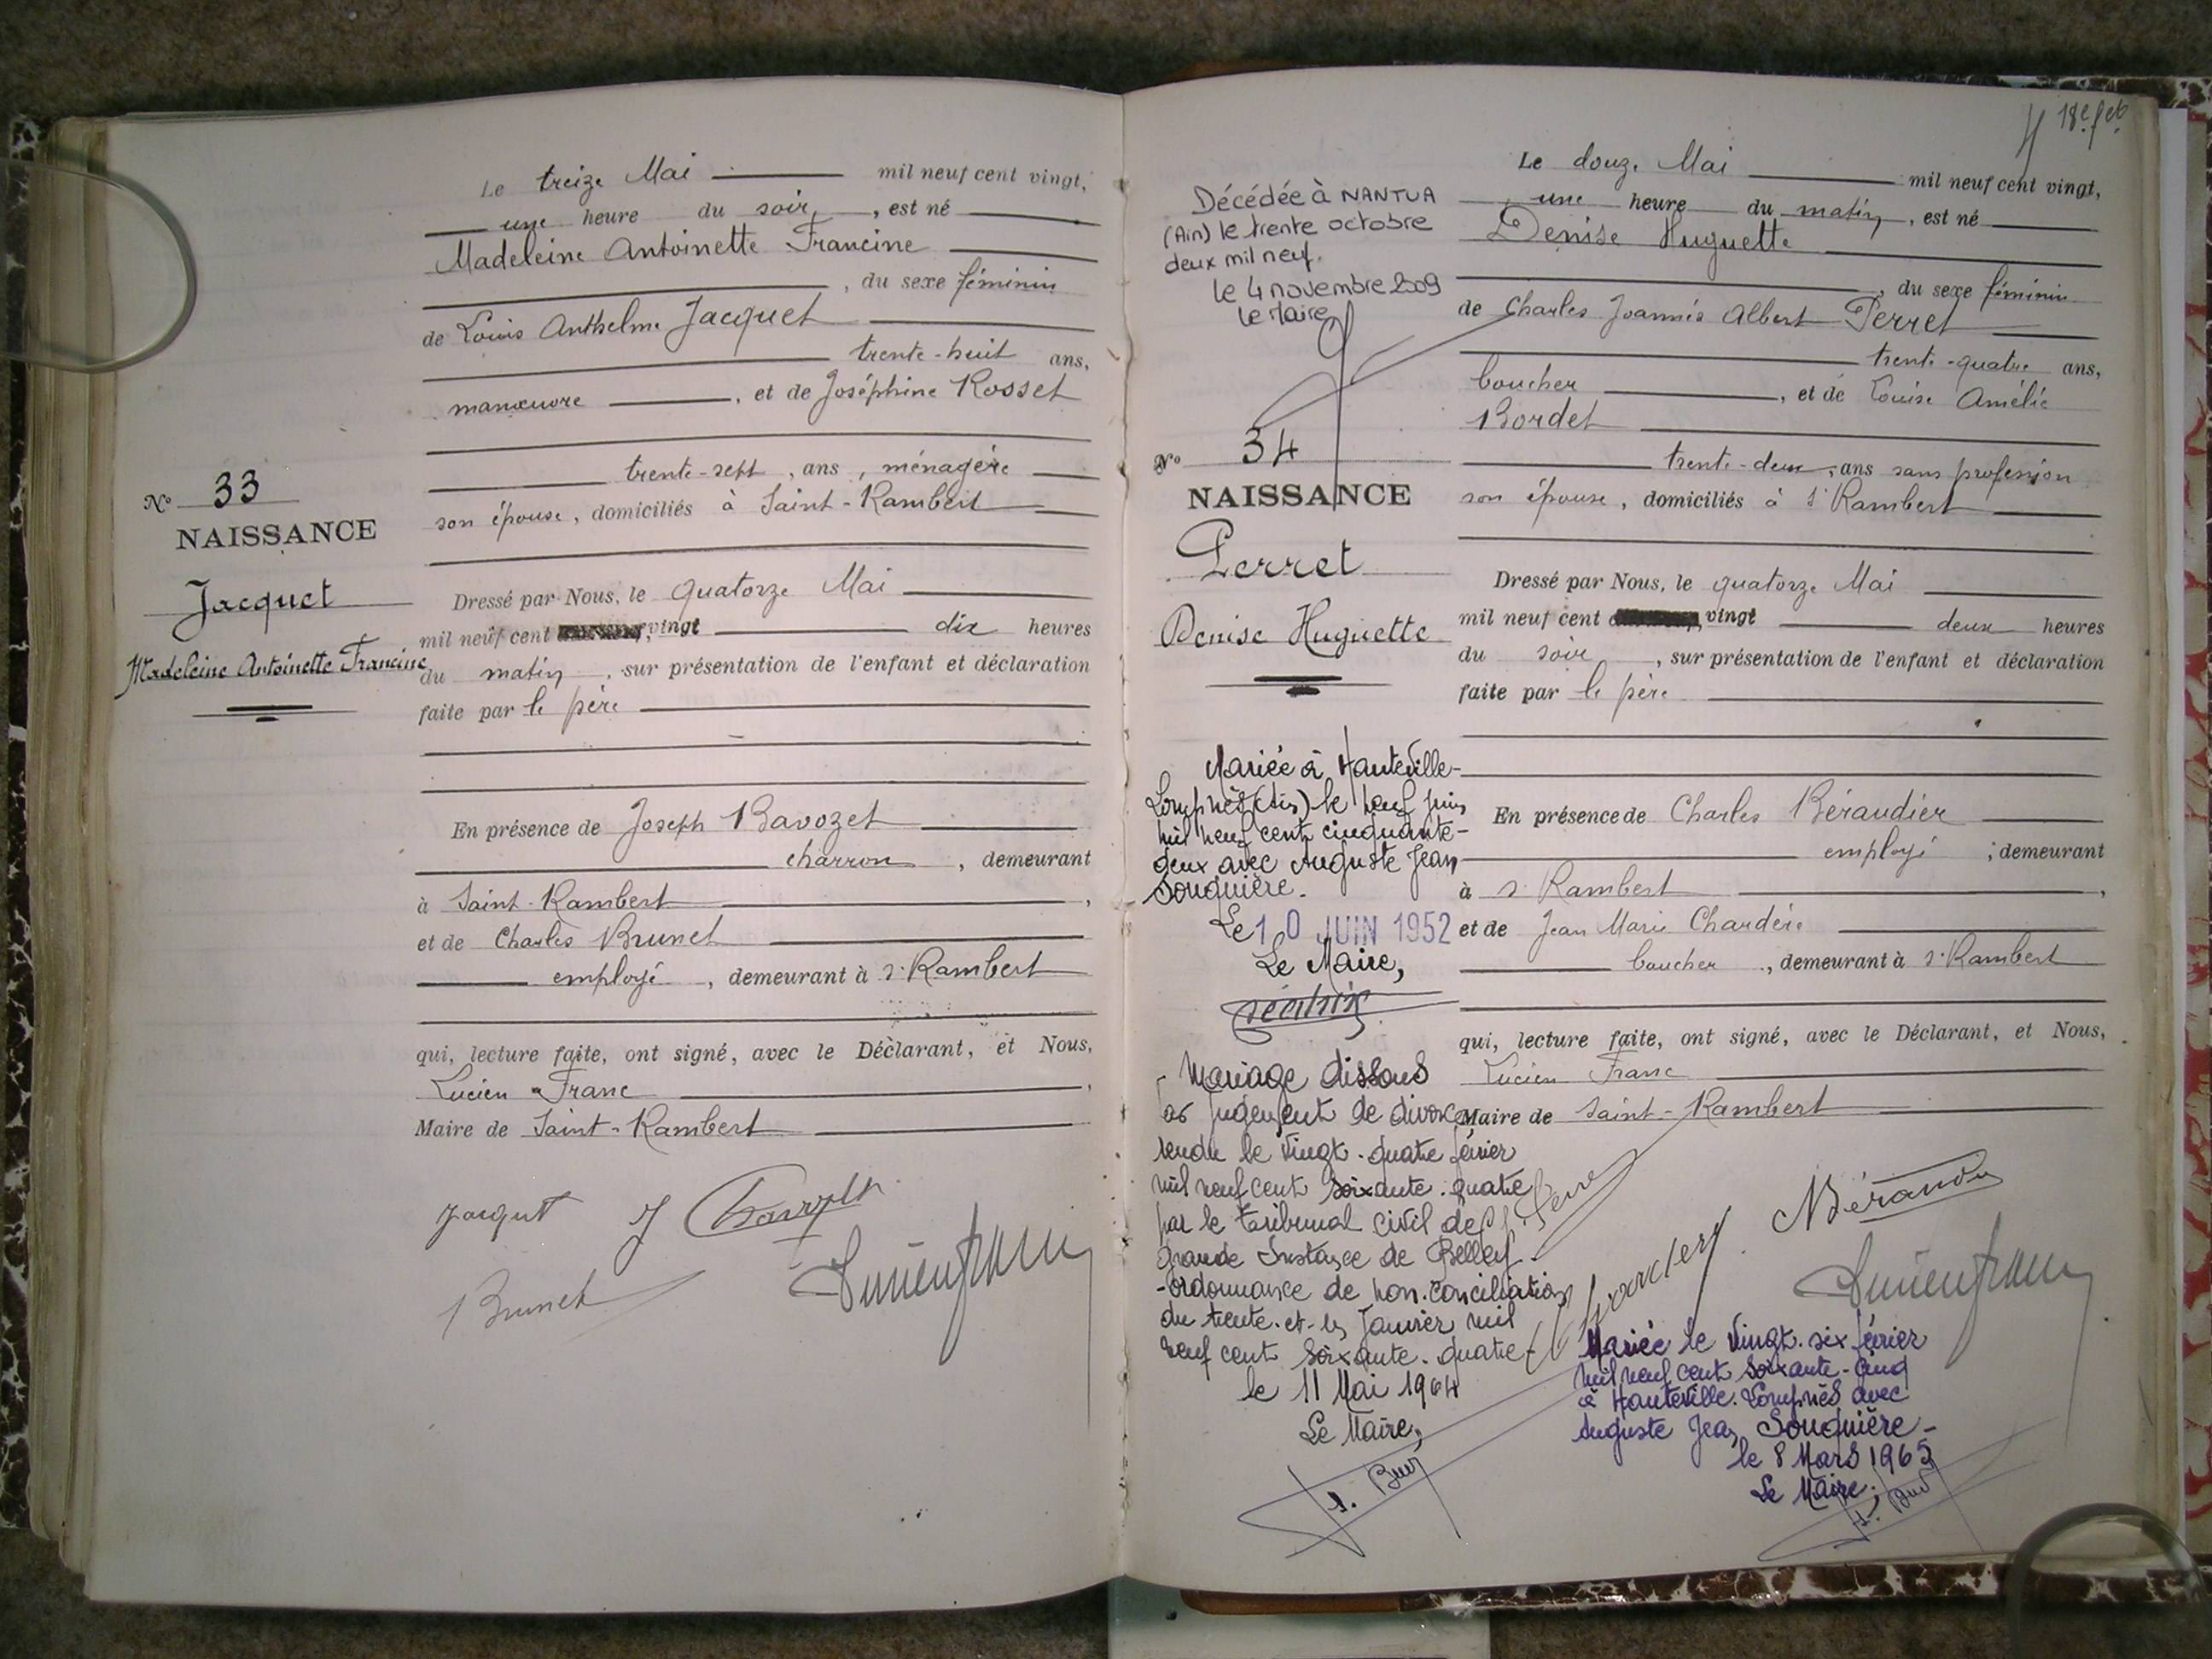 Le treize Mai mil neuf cent vingt,
une heure du soir, est né
Madeleine Antoinette Francine
, du sexe féminin
de Louis Anthelme Jacquet
trente-huit ans,
manœuvre, et de Joséphine Rosset
trente-sept, ans, ménagère
son épouse, domiciliés à Saint-Rambert
N° 33
NAISSANCE
Jacquet
Madeleine Antoinette Francine
Dressé par Nous, le quatorze Mai
mil neuf cent vingt dix heures
du matin, sur présentation de l'enfant et déclaration
faite par le père
En présence de Joseph Bavozet
charron, demeurant
à Saint-Rambert,
et de Charles Brunet
employé, demeurant à St Rambert
qui, lecture faite, ont signé, avec le Déclarant, et Nous,
Lucien Franc,
Maire de Saint-Rambert
Jacquet J
Brunet Lucien Franc
18e fet
Le douze Mai mil neuf cent vingt,
une heure du matin, est né
Denise Huguette
, du sexe féminin
de Charles Joannès Albert Perret
trente-quatre ans,
boucher, et de Louise Amélie
Bordet
trente-deux, ans sans profession
son épouse, domiciliés à St Rambert
Décédée à NANTUA
(Ain) le trente octobre
deux mil neuf.
le 4 novembre 2009
le Maire
N° 34
NAISSANCE
Perret
Denise Huguette
Dressé par Nous, le quatorze Mai
mil neuf cent vingt deux heures
du soir, sur présentation de l'enfant et déclaration
faite par le père
En présence de Charles Béraudier
employé, demeurant
à St Rambert,
et de Jean Marie Chardère
boucher, demeurant à St Rambert
qui, lecture faite, ont signé, avec le Déclarant, et Nous,
Lucien Franc
Maire de Saint-Rambert
Mariée à Hauteville-
Lompnès (Ain) le neuf juin
mil neuf cent cinquante-
deux avec Auguste Jean
Souquière.
Le 10 JUIN 1952
Le Maire,
Mariage dissous
par jugement de divorce
rendu le vingt-quatre février
mil neuf cent soixante-quatre
par le tribunal civil de
grande Instance de Belley
-ordonnance de non-conciliation
du trente-et-un Janvier mil
neuf cent soixante-quatre-
le 11 Mai 1964
Le Maire,
Lucien Franc
Mariée le vingt-six février
mil neuf cent soixante-cinq
à Hauteville-Lompnès avec
Auguste Jean Souquière-
le 8 Mars 1965
Le Maire,